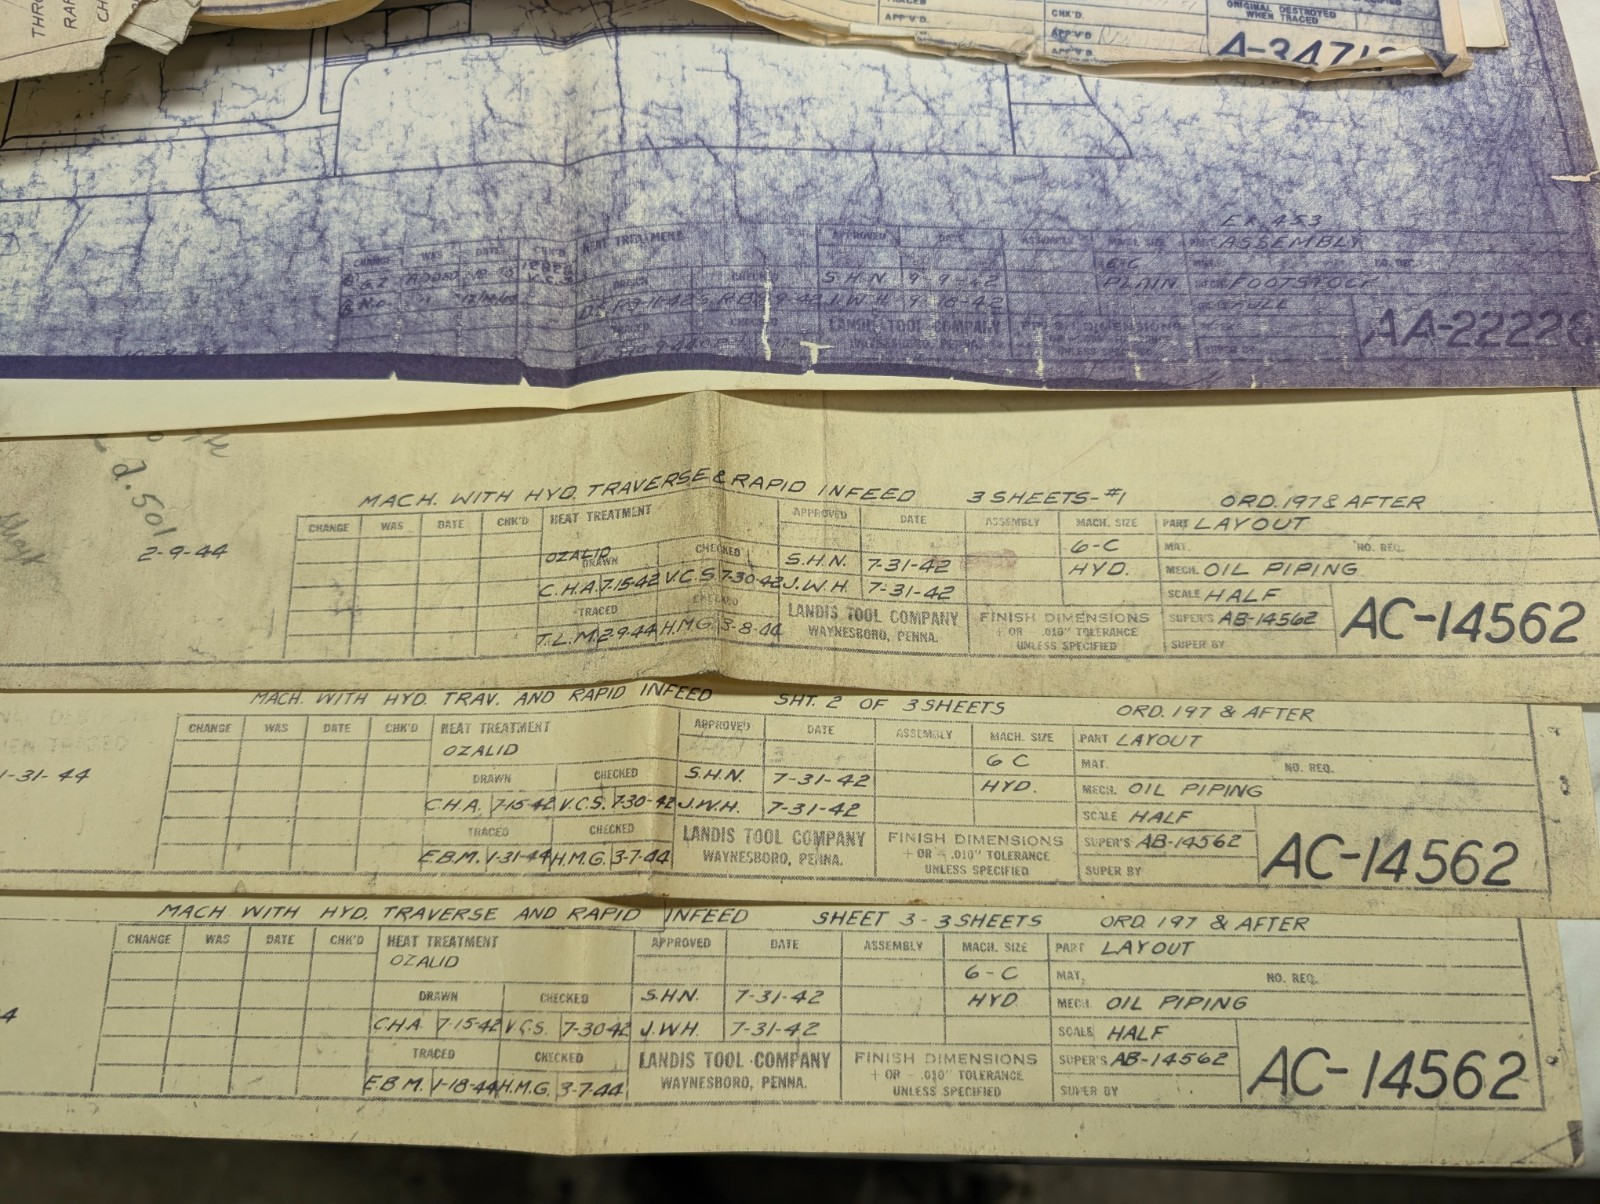 THR
RAP
CH
TRACED
APP'V'D.
CHK'D.
APP'V'D
APP'V'D
ORIGINAL DESTROYED
WHEN TRACED
A-3471
EX 453
CHANGE WAS DATE CHK'D HEAT TREATMENT APPROVED DATE ASSEMBLY MACH. SIZE PART ASSEMBLY
6-C
ADDED
S.H.N. 9-9-42 PLAIN FOOTSTOCK
DRAWN CHECKED
J.W.H. 9-10-42 SCALE FULL
TRACED CHECKED LANDIS TOOL COMPANY FINISH DIMENSIONS
WAYNESBORO, PENNA. UNLESS SPECIFIED
AA-2222
d.501
2-9-44
MACH. WITH HYD. TRAVERSE & RAPID INFEED 3 SHEETS-#1 ORD. 197 & AFTER
CHANGE WAS DATE CHK'D HEAT TREATMENT APPROVED DATE ASSEMBLY MACH. SIZE PART LAYOUT
OZALID 6-C MAT. NO. REQ.
DRAWN CHECKED S.H.N. 7-31-42 HYD. MECH. OIL PIPING
C.H.A. 7-15-42 V.C.S. 7-30-42 J.W.H. 7-31-42 SCALE HALF
TRACED CHECKED LANDIS TOOL COMPANY FINISH DIMENSIONS SUPER'S AB-14562 AC-14562
T.L.M. 2-9-44 H.M.G. 3-8-44 WAYNESBORO, PENNA. + OR - .010" TOLERANCE
UNLESS SPECIFIED SUPER BY
MACH. WITH HYD. TRAV. AND RAPID INFEED SHT. 2 OF 3 SHEETS ORD. 197 & AFTER
CHANGE WAS DATE CHK'D HEAT TREATMENT APPROVED DATE ASSEMBLY MACH. SIZE PART LAYOUT
OZALID 6 C MAT. NO. REQ.
1-31-44
DRAWN CHECKED S.H.N. 7-31-42 HYD. MECH. OIL PIPING
C.H.A. 7-15-42 V.C.S. 7-30-42 J.W.H. 7-31-42 SCALE HALF
TRACED CHECKED LANDIS TOOL COMPANY FINISH DIMENSIONS SUPER'S AB-14562 AC-14562
E.B.M. 1-31-44 H.M.G. 3-7-44 WAYNESBORO, PENNA. + OR - .010" TOLERANCE
UNLESS SPECIFIED SUPER BY
MACH WITH HYD. TRAVERSE AND RAPID INFEED SHEET 3 - 3 SHEETS ORD. 197 & AFTER
CHANGE WAS DATE CHK'D HEAT TREATMENT APPROVED DATE ASSEMBLY MACH. SIZE PART LAYOUT
OZALID 6-C MAT. NO. REQ.
DRAWN CHECKED S.H.N. 7-31-42 HYD. MECH. OIL PIPING
4
C.H.A. 7-15-42 V.C.S. 7-30-42 J.W.H. 7-31-42 SCALE HALF
TRACED CHECKED LANDIS TOOL COMPANY FINISH DIMENSIONS SUPER'S AB-14562 AC-14562
E.B.M. 1-18-44 H.M.G. 3-7-44 WAYNESBORO, PENNA. + OR - .010" TOLERANCE
UNLESS SPECIFIED SUPER BY